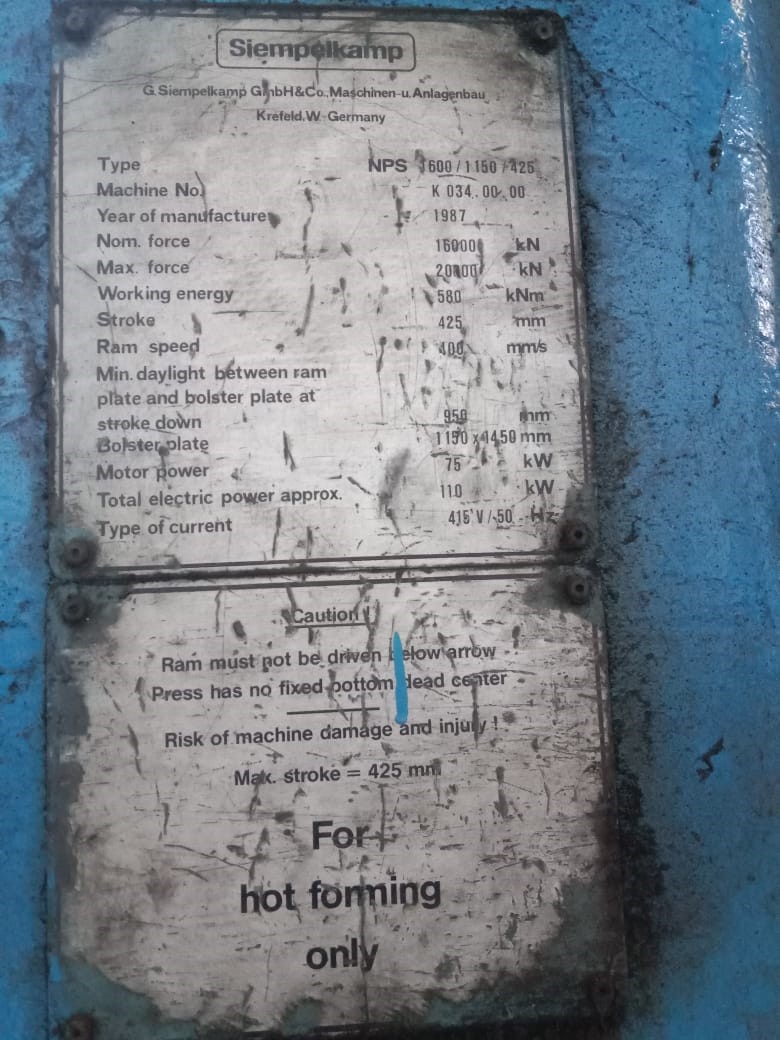 Siempelkamp
G. Siempelkamp GmbH & Co., Maschinen-u. Anlagenbau
Krefeld, W-Germany
Type NPS 1600 / 1150 / 425
Machine No. K 034. 00. 00
Year of manufacture 1987
Nom. force 16000 kN
Max. force 20000 kN
Working energy 580 kNm
Stroke 425 mm
Ram speed 400 mm/s
Min. daylight between ram
plate and bolster plate at
stroke down 950 mm
Bolster plate 1150 x 1450 mm
Motor power 75 kW
Total electric power approx. 110 kW
Type of current 415 V / 50 Hz
Caution !
Ram must not be driven below arrow
Press has no fixed bottom dead center
Risk of machine damage and injury !
Max. stroke = 425 mm
For
hot forming
only